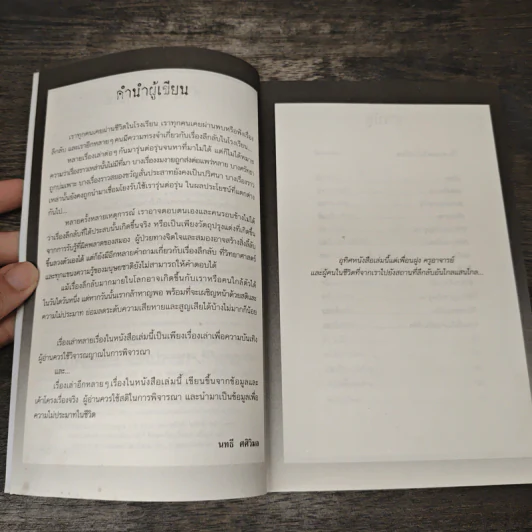 คำนำผู้เขียน
เราทุกคนเคยผ่านชีวิตในโรงเรียน เราทุกคนเคยผ่านพบหรือฟังเรื่อง
ลึกลับ และเราอีกหลายๆ คนมีความทรงจำเกี่ยวกับเรื่องลึกลับในโรงเรียน
หลายเรื่องเล่าต่อๆ กันมารุ่นต่อรุ่นจนหาที่มาไม่ได้ แต่ก็ไม่ได้หมาย
ความว่าเรื่องราวเหล่านั้นไม่มีที่มา บางเรื่องงมงายถูกส่งต่อแพร่หลาย
ถูกบ่มเพาะ บางเรื่องราวสยองขวัญสั่นประสาทยังคงเป็นปริศนา บางเรื่องราว
เหล่านั้นยังคงถูกนำมาเชื่อมโยงรับใช้เรารุ่นต่อรุ่น ในผลประโยชน์ที่แตกต่าง
กันไป...
หลายครั้งหลายเหตุการณ์ เราอาจตอบตนเองและคนรอบข้างไม่ได้
ว่าเรื่องลึกลับที่ได้ประสบนั้นเกิดขึ้นจริง หรือเป็นเพียงวัตถุปรุงแต่งที่เกิดขึ้น
จากการรับรู้ที่ผิดพลาดของสมอง ผู้ป่วยทางจิตใจและสมองอาจสร้างสิ่งลี้ลับ
ขึ้นลวงตัวเองได้ แต่ก็ยังมีอีกหลายคำถามเกี่ยวกับเรื่องลึกลับ ที่วิทยาศาสตร์
และทุกแขนงความรู้ของมนุษยชาติยังไม่สามารถให้คำตอบได้
แม้เรื่องลึกลับมากมายในโลกอาจเกิดขึ้นกับเราหรือคนใกล้ตัวได้
ในวันใดวันหนึ่ง แต่หากวันนั้นเรากล้าหาญพอ พร้อมที่จะเผชิญหน้าด้วยสติและ
ความไม่ประมาท ย่อมลดระดับความเสียหายและสูญเสียได้บ้างไม่มากก็น้อย
เรื่องเล่าหลายเรื่องในหนังสือเล่มนี้เป็นเพียงเรื่องเล่าเพื่อความบันเทิง
ผู้อ่านควรใช้วิจารณญาณในการพิจารณา
และ...
เรื่องเล่าอีกหลายๆ เรื่องในหนังสือเล่มนี้ เขียนขึ้นจากข้อมูลและ
เค้าโครงเรื่องจริง ผู้อ่านควรใช้สติในการพิจารณา และนำมาเป็นข้อมูลเพื่อ
ความไม่ประมาทในชีวิต
นทธี ศศิวิมล
อุทิศหนังสือเล่มนี้แด่เพื่อนฝูง ครูอาจารย์
และผู้คนในชีวิตที่จากเราไปยังสถานที่ลึกลับอันไกลแสนไกล...